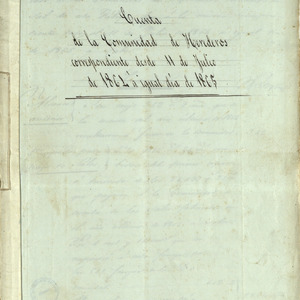 Cuenta
de la Comunidad de Herederos
correspondiente desde 11 de Julio
de 1862 á igual dia de 1865